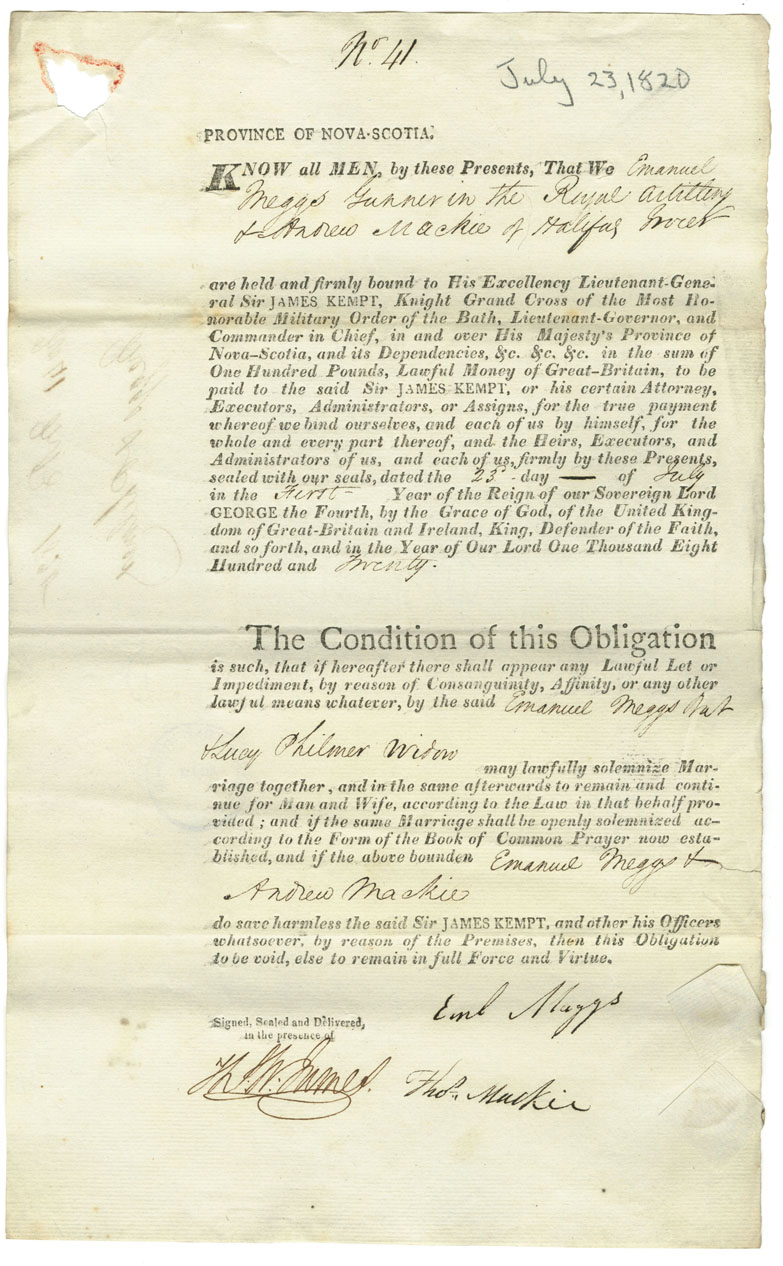 No. 41.
July 23, 1820
PROVINCE OF NOVA-SCOTIA.
KNOW all MEN, by these Presents, That We Emanuel
Meggs Gunner in the Royal Artillery
& Andrew Mackie of Halifax
are held and firmly bound to His Excellency Lieutenant-Gene-
ral Sir JAMES KEMPT, Knight Grand Cross of the Most Ho-
norable Military Order of the Bath, Lieutenant-Governor, and
Commander in Chief, in and over His Majesty's Province of
Nova-Scotia, and its Dependencies, &c. &c. &c. in the sum of
One Hundred Pounds, Lawful Money of Great-Britain, to be
paid to the said Sir JAMES KEMPT, or his certain Attorney,
Executors, Administrators, or Assigns, for the true payment
whereof we bind ourselves, and each of us by himself, for the
whole and every part thereof, and the Heirs, Executors, and
Administrators of us, and each of us, firmly by these Presents,
sealed with our seals, dated the 23d day — of July
in the First Year of the Reign of our Sovereign Lord
GEORGE the Fourth, by the Grace of God, of the United King-
dom of Great-Britain and Ireland, King, Defender of the Faith,
and so forth, and in the Year of Our Lord One Thousand Eight
Hundred and Twenty.
The Condition of this Obligation
is such, that if hereafter there shall appear any Lawful Let or
Impediment, by reason of Consanguinity, Affinity, or any other
lawful means whatever, by the said Emanuel Meggs But
& Lucy Philmer Widow
may lawfully solemnize Mar-
riage together, and in the same afterwards to remain and conti-
nue for Man and Wife, according to the Law in that behalf pro-
vided; and if the same Marriage shall be openly solemnized ac-
cording to the Form of the Book of Common Prayer now esta-
blished, and if the above bounden Emanuel Meggs &
Andrew Mackie
do save harmless the said Sir JAMES KEMPT, and other his Officers
whatsoever, by reason of the Premises, then this Obligation
to be void, else to remain in full Force and Virtue.
Eml Maggs
Signed, Sealed and Delivered,
in the presence of
Thos. Mackie